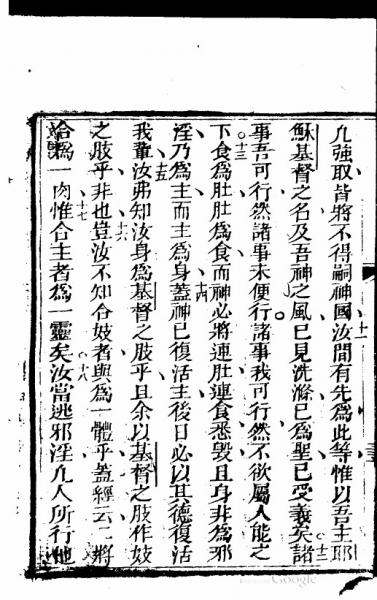 凢強取皆將不得嗣神國汝間有先為此等惟以吾主耶
穌基督之名及吾神之風已見洗滌已為聖已受義矣諸
事吾可行然諸事未便行諸事我可行然不欲屬人能之
下食為肚肚為食而神必將連肚連食悉毀且身非為邪
淫乃為主而主為身葢神已復活主後日必以其德復活
我輩汝弗知汝身為基督之肢乎且余以基督之肢作妓
之肢乎非也豈汝不知合妓者與為一體乎葢經云二將
為一肉惟合主者為一靈矣汝當逃邪淫凢人所行他
十一
十二
十三
十四
十五
十六
十七
十八
Google